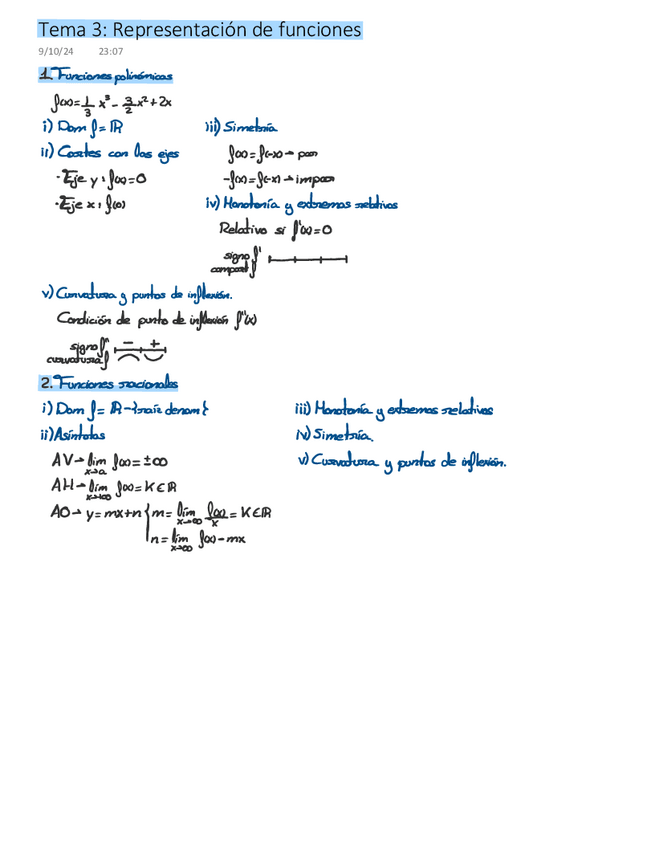 Tema 3: Representación de funciones
9/10/24 23:07
1. Funciones polinómicas
f(x)=1/3 x³ - 3/2 x² + 2x
i) Dom f = ℝ
ii) Cortes con los ejes
· Eje y: f(x)=0
· Eje x: f(0)
iii) Simetría
f(x) = f(-x) → par
-f(x) = f(-x) → impar
iv) Monotonía y extremos relativos
Relativo si f'(x)=0
signo f'
comport f
v) Curvatura y puntos de inflexión.
Condición de punto de inflexión f''(x)
signo f'' - +
curvatura f
2. Funciones racionales
i) Dom f = ℝ - {raíz denom}
ii) Asíntotas
AV → lim x→a f(x) = ±∞
AH → lim x→±∞ f(x) = K ∈ ℝ
AO → y = mx+n { m = lim x→∞ f(x)/x = K ∈ ℝ
n = lim x→∞ f(x) - mx
iii) Monotonía y extremos relativos
iv) Simetría.
v) Curvatura y puntos de inflexión.